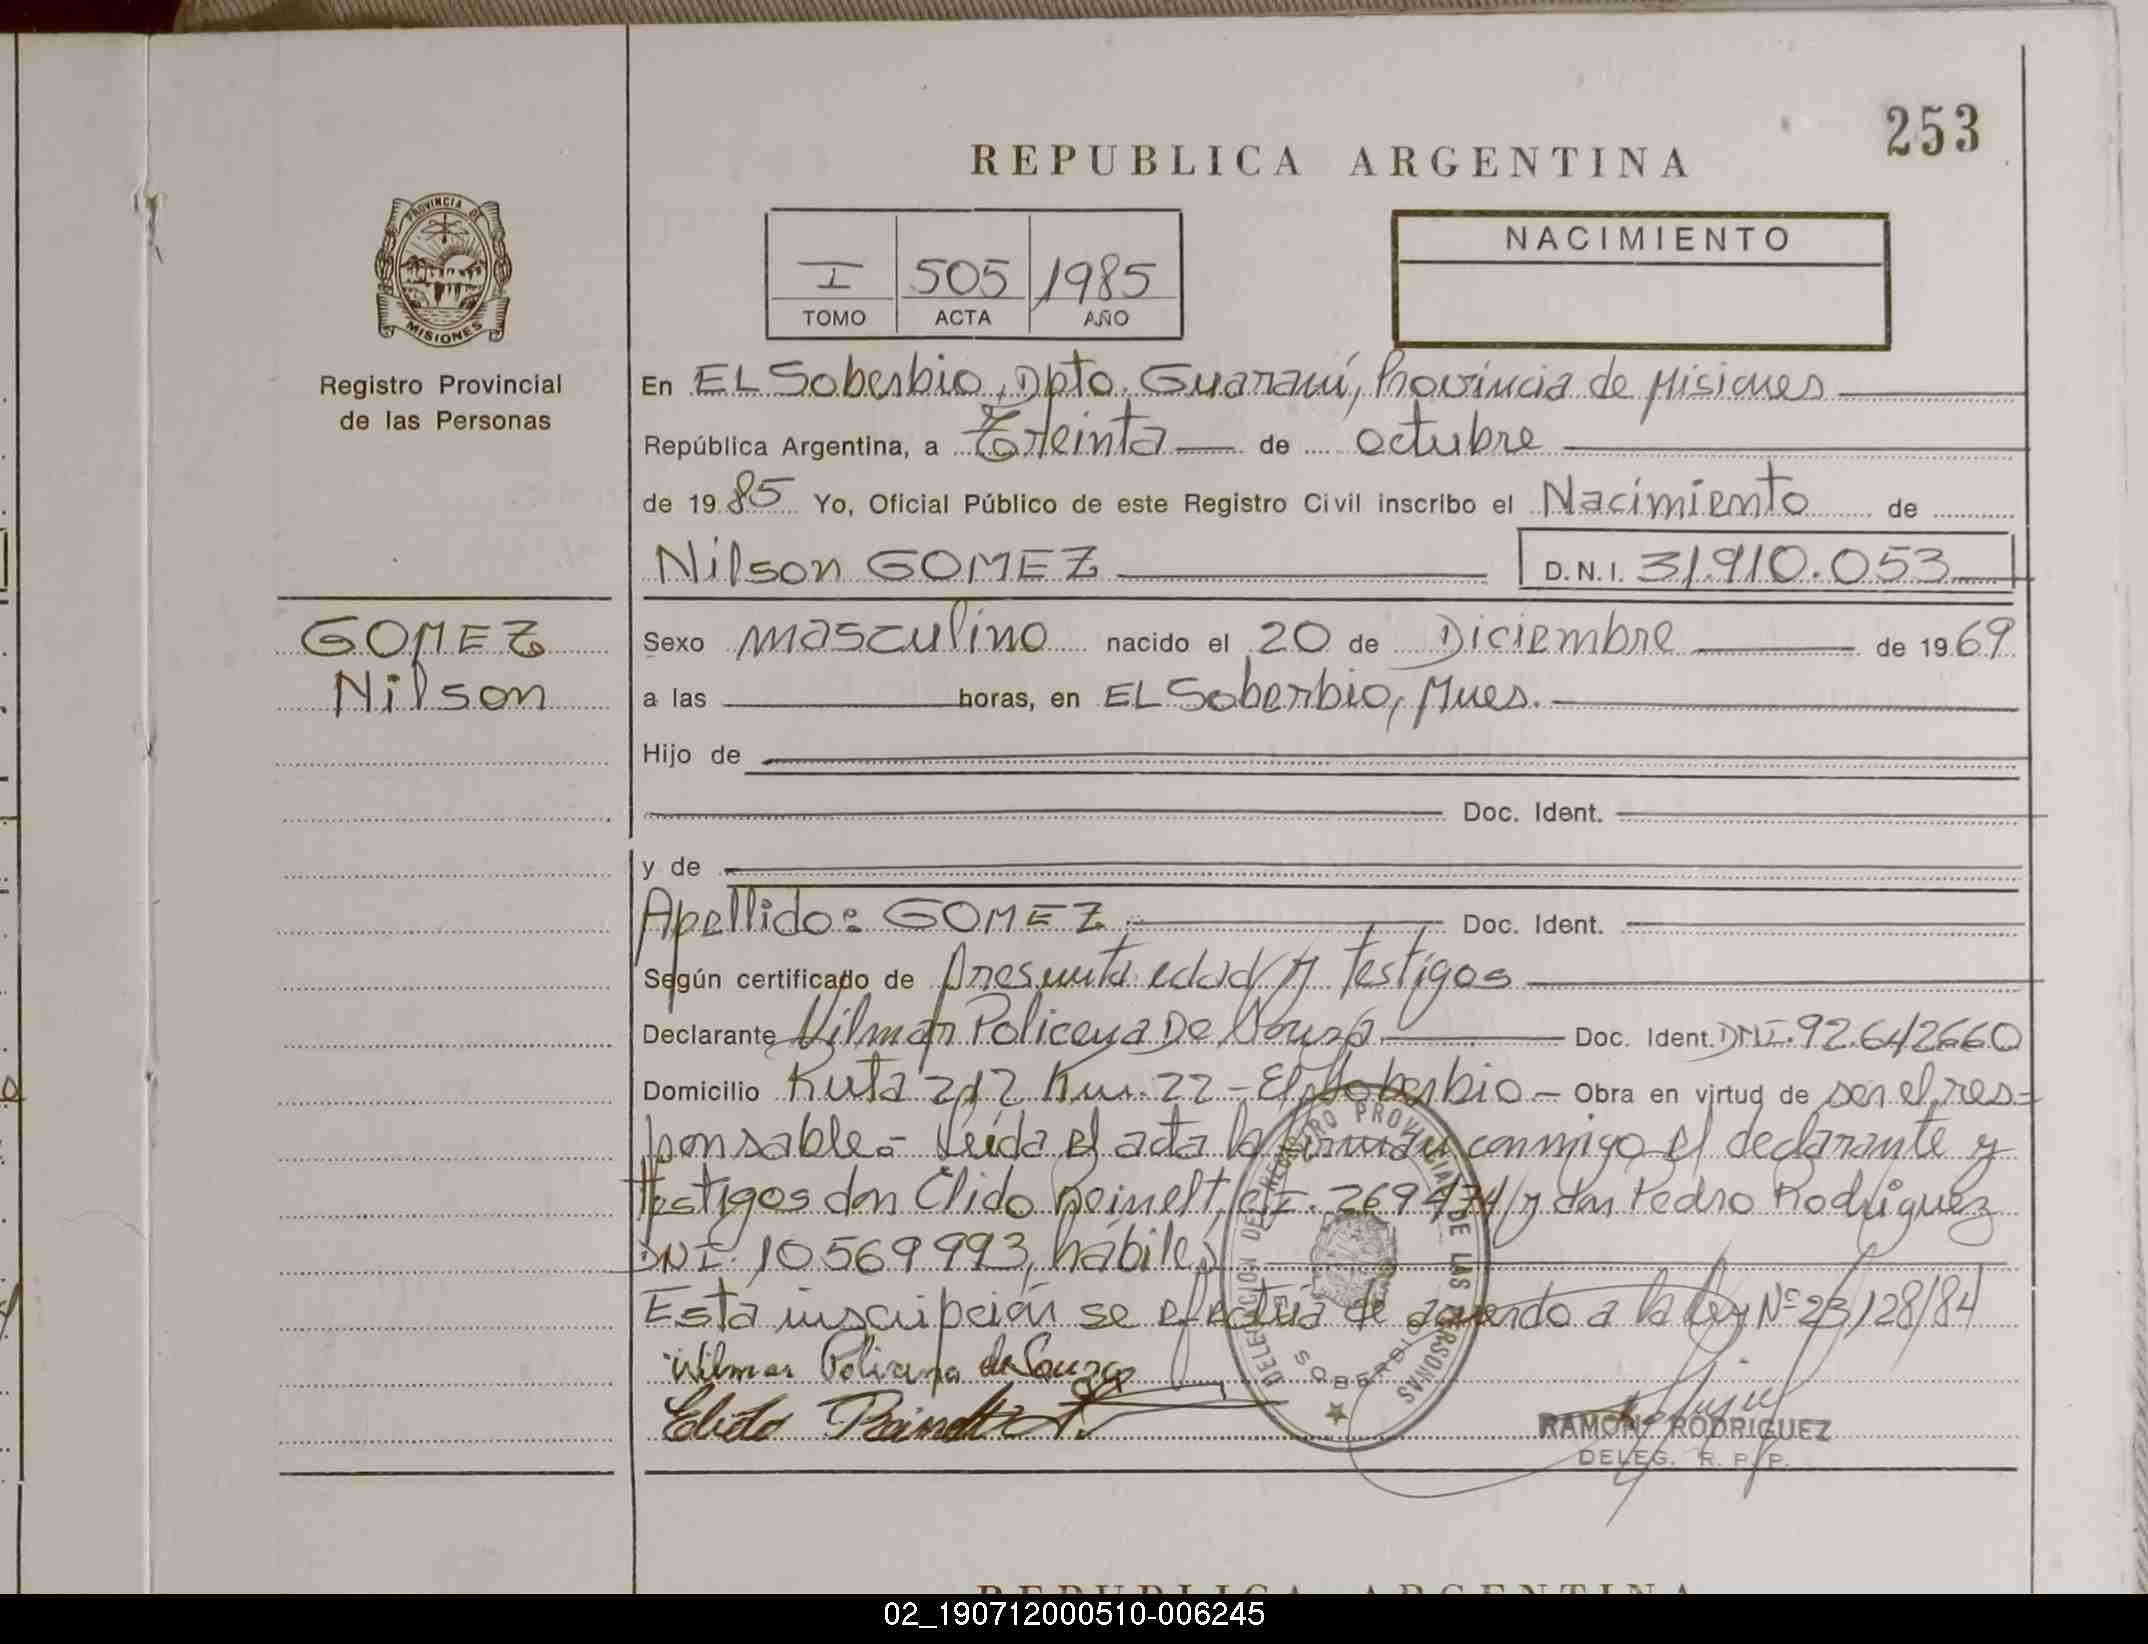 253
REPUBLICA ARGENTINA
PROVINCIA DE MISIONES
Registro Provincial
de las Personas
I 505 1985
TOMO ACTA AÑO
NACIMIENTO
En EL Soberbio, Dpto. Guaraní, Provincia de Misiones
República Argentina, a Treinta de octubre
de 1985 Yo, Oficial Público de este Registro Civil inscribo el Nacimiento de
Nilson GOMEZ D.N.I. 31.910.053
GOMEZ
Nilson
Sexo masculino nacido el 20 de Diciembre de 1969
a las horas, en EL Soberbio, Mnes.
Hijo de
Doc. Ident.
y de
Apellido: GOMEZ Doc. Ident.
Según certificado de Presunta edad y testigos
Declarante Vilmar Policena De Souza Doc. Ident. DNI. 92.642660
Domicilio Ruta 212 Km. 22 - El Soberbio - Obra en virtud de ser el res-
ponsable.- Leída el acta la firman conmigo el declarante y
testigos don Elido Reinelt, CI. 269474 y don Pedro Rodriguez
DNI. 10569993, hábiles
Esta inscripción se efectúa de acuerdo a la ley Nº 23128/84
Wilmar Policena de Souza
Elido Reinelt
DELEGACION DEL REGISTRO PROVINCIAL DE LAS PERSONAS
SOBERBIO
RAMON RODRIGUEZ
DELEG. R. P. P.
REPUBLICA ARGENTINA
02_190712000510-006245